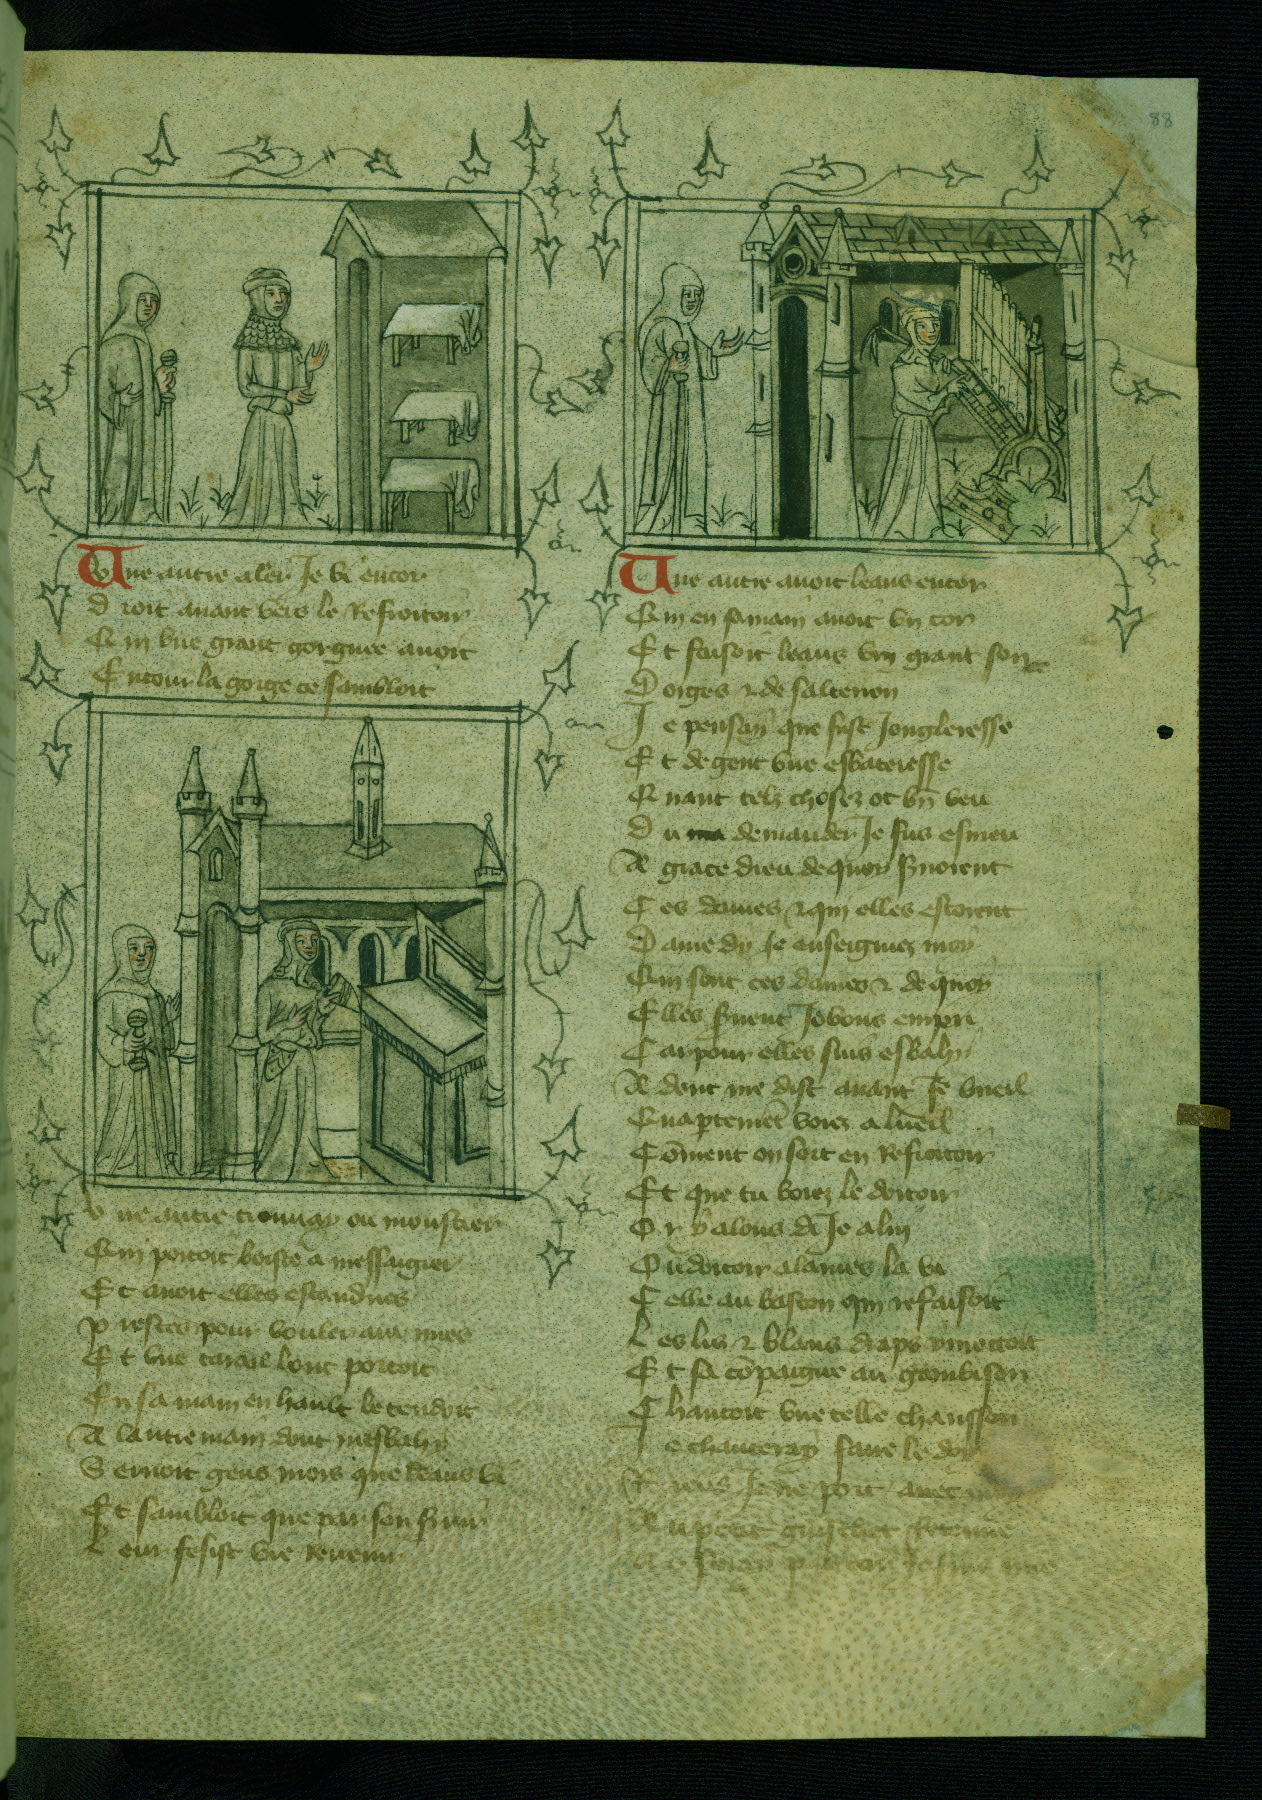 88
Une autre aler Je vi encor
Droit auant vers le Refroitour
Qui vne grant gorgiere auoit
Entour la gorge ce sambloit
Vne autre trouuay ou moustier
Qui portoit boiste a messaigier
Et auoit elles estandues
Prestes pour vouler aux nues
Et vne tarere dont portoit
En sa main en hault le tendoit
A lautre main dont mesbahy
Seruoit gens mors que leans vi
Et sambloit que par son seruir
Leur fesist vie reuenir
Une autre auoit leans encor
Qui en sa main auoit vn cor
Et faisoit leans vn grant son
Dorgues & de salterion
Je pensay que fust Jongleresse
Et de gent vne esbateresse
Quant telz choses ot bn veu
Du demander Je fus esmeu
A grace dieu de quoy seruoient
Ces dames & qui elles estoient
Dame dy Je enseignies moy
Qui sont ces dames & de quoy
Elles seruent Je vous empri
Car pour elles suis esbahy
A dont me dist auant Je vueil
Quaptemēt voies a lueil
Cōment on sert en Refroitour
Et que tu voies le dortour
Or y alons di Je a luy
Ou dortoir alames la vi
Celle au baston qui refaisoit
Les lis & blans draps y mettoit
Et sa cōpaigne au gambison
Chantoit vne telle chansson
Je chanteray faire le doy
Je ne port auec